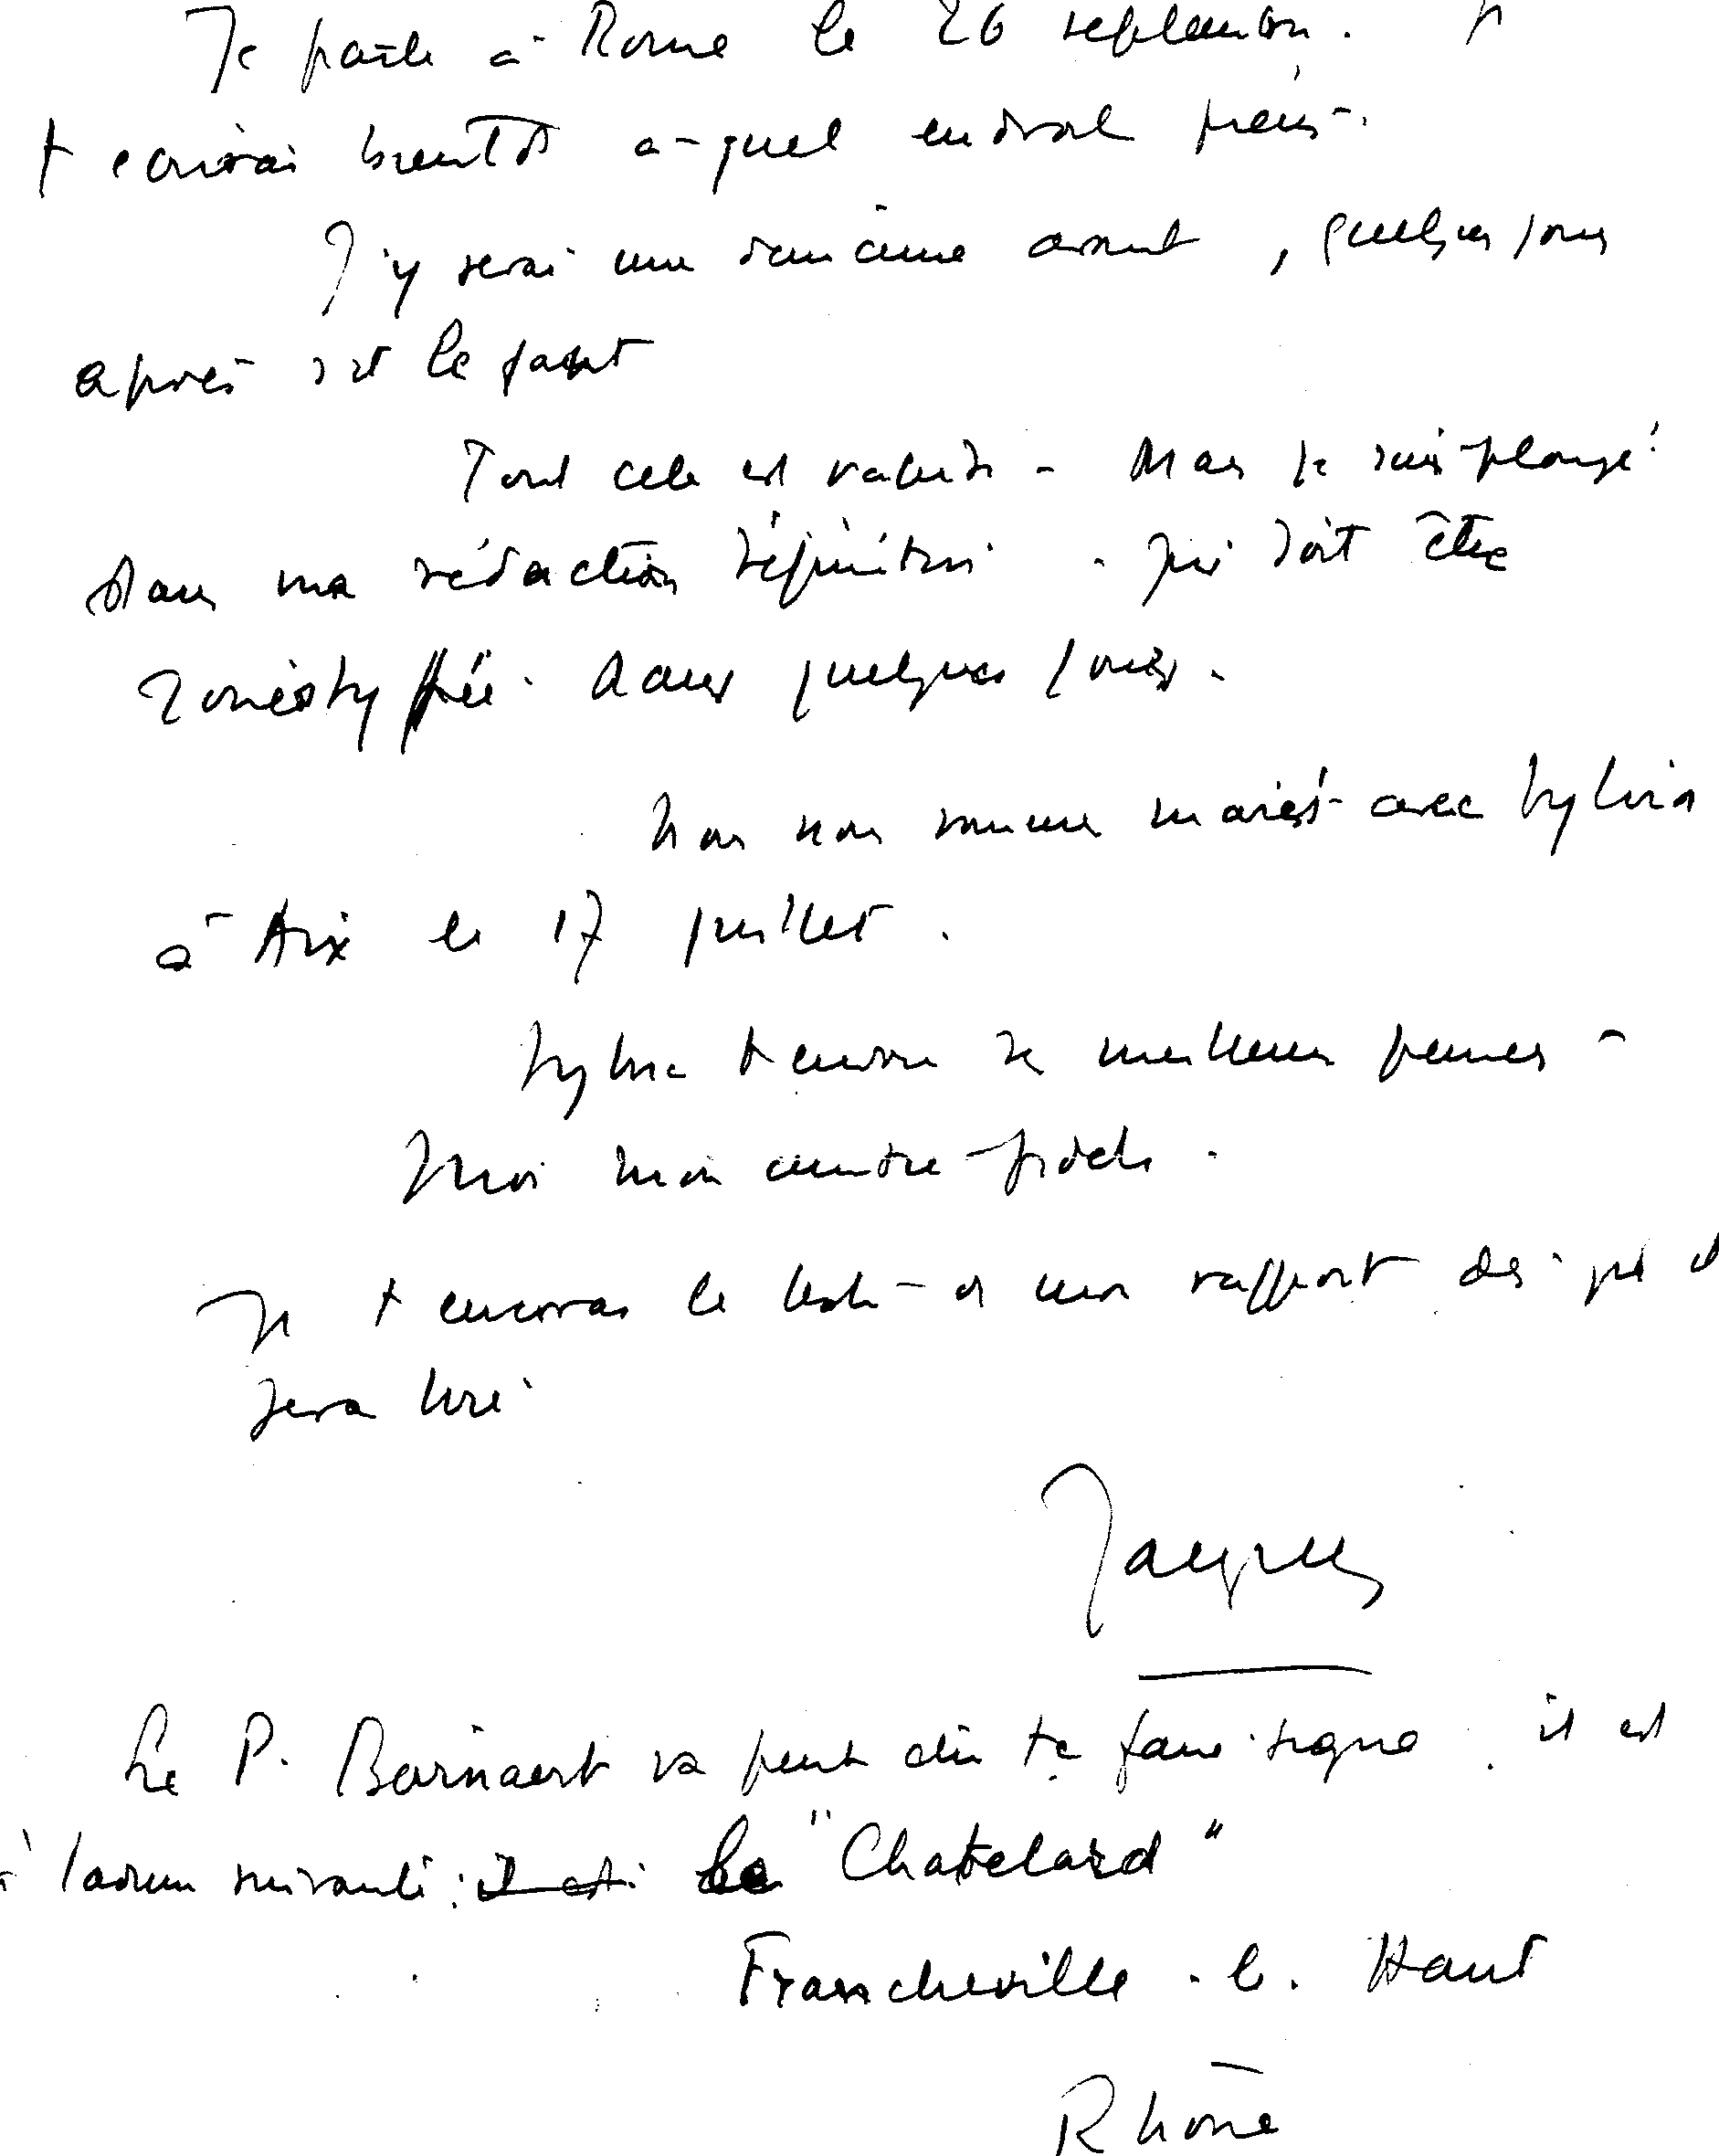 Je parle à Rome le 26 septembre. Je
t'écrirai bientôt à quel endroit précis.
J'y serai une semaine avant, quelques jours
après s'il le faut
Tout cela est valable - Mais je suis plongé
dans ma rédaction définitive - qui doit être
ronéotypée dans quelques jours.
Nous nous sommes mariés avec Sylvia
à Aix le 17 juillet.
Sylvia t'envoie de meilleures pensées -
Moi mon amitié fidèle.
Je t'enverrai le texte de mon rapport dès qu'il
sera livré
Jacques
Le P. Bernaert va peut être te faire signe. il est
à l'adresse suivante : il est le "Chatelard"
Francheville-le-Haut
Rhône